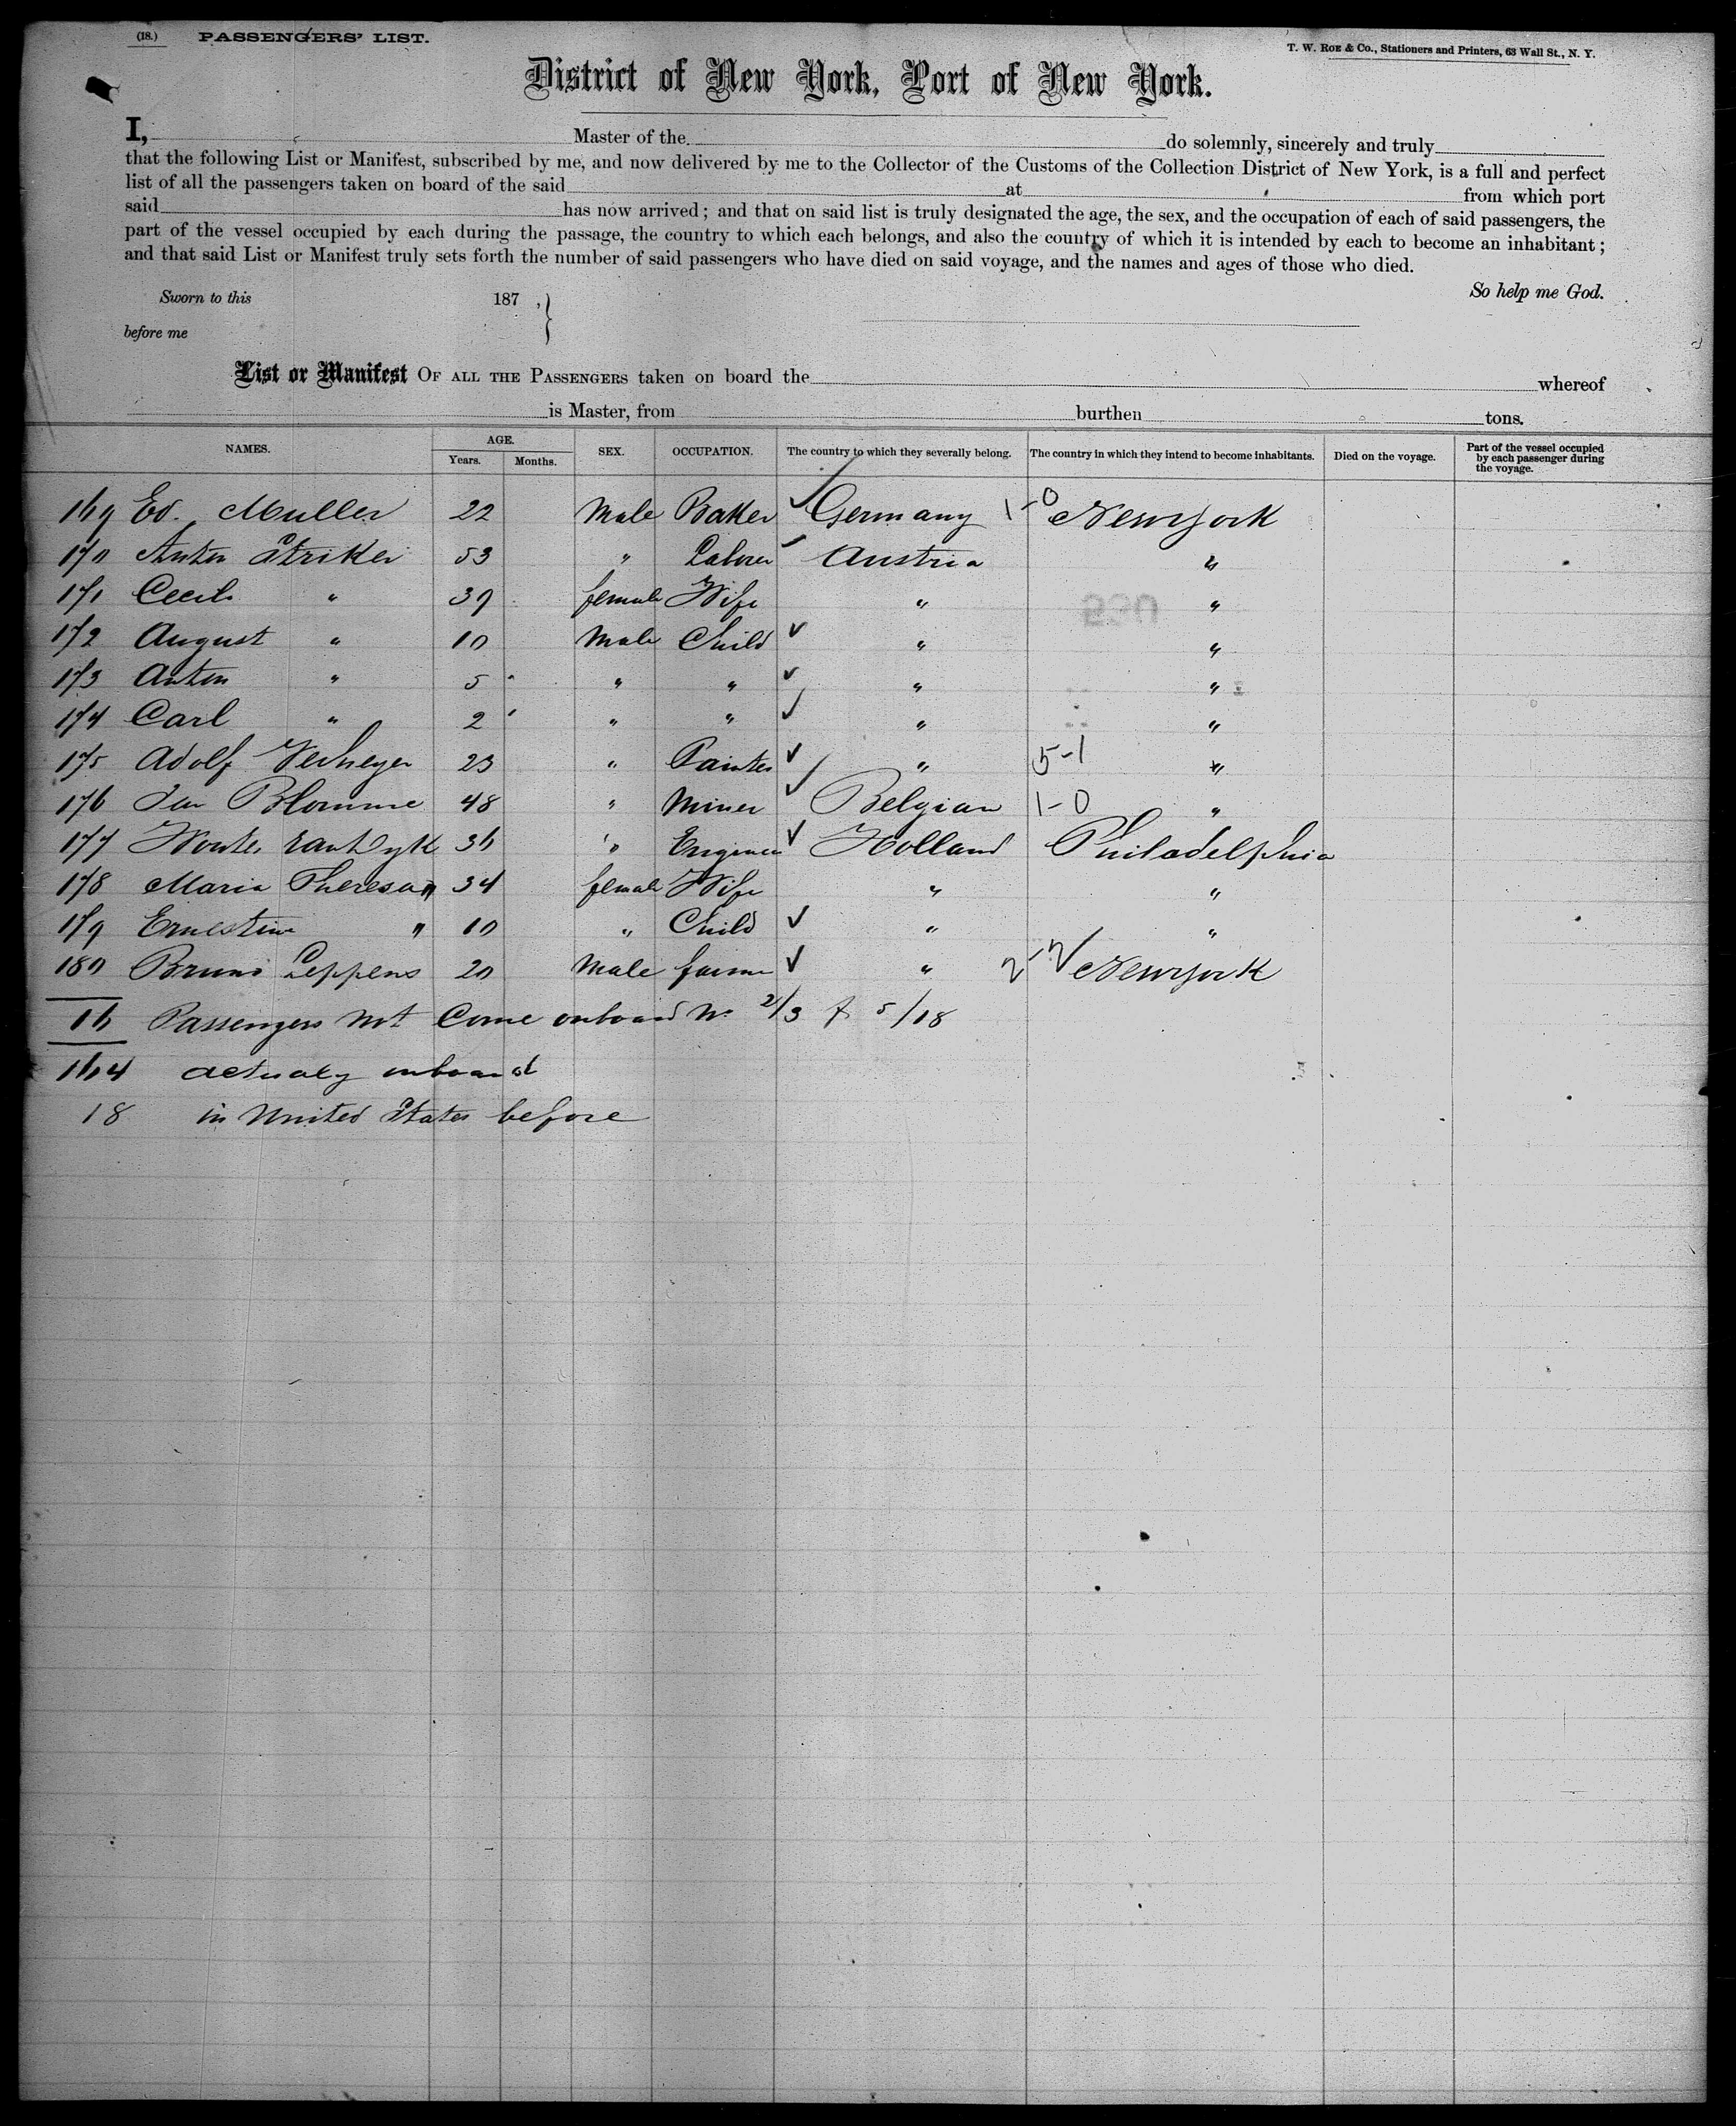 (18.) PASSENGERS' LIST.
T. W. Roe & Co., Stationers and Printers, 63 Wall St., N. Y.
District of New York, Port of New York.
I, Master of the do solemnly, sincerely and truly
that the following List or Manifest, subscribed by me, and now delivered by me to the Collector of the Customs of the Collection District of New York, is a full and perfect
list of all the passengers taken on board of the said at from which port
said has now arrived; and that on said list is truly designated the age, the sex, and the occupation of each of said passengers, the
part of the vessel occupied by each during the passage, the country to which each belongs, and also the country of which it is intended by each to become an inhabitant;
and that said List or Manifest truly sets forth the number of said passengers who have died on said voyage, and the names and ages of those who died.
Sworn to this 187 , So help me God.
before me
List or Manifest Of all the Passengers taken on board the whereof
is Master, from burthen tons.
NAMES. AGE. Years. Months. SEX. OCCUPATION. The country to which they severally belong. The country in which they intend to become inhabitants. Died on the voyage. Part of the vessel occupied by each passenger during the voyage.
169 Ed. Muller 22 Male Baker Germany 1-0 New york
170 Anton Striker 53 " Laborer Austria "
171 Cecile " 39 female Wife " "
172 August " 10 Male Child " "
173 Anton " 5 " " " "
174 Carl " 2 " " " "
175 Adolf 23 " Painter " 5-1 "
176 Jan Blomme 48 " Miner Belgian 1-0 "
177 36 " Engineer Holland Philadelphia
178 Maria Theresa " 34 female Wife " "
179 Ernestine " 10 " Child " "
180 Bruno Leppens 20 Male farmer " New york
16 Passengers not Come onboard No 2/3 & 5/18
164 actualy onboard
18 in United States before